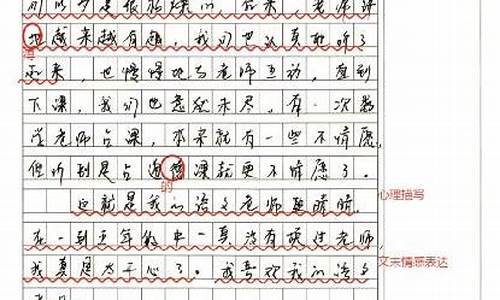 后来,老师讲
地越来越有趣,我们也认真地听了
得
起来,也慢慢地与老师互动,直到
下课,我们也意犹未尽,有一次数
学老师占课,本来就有一些不情愿,
但听到是占课就更不情愿了。
的
心理描写
这就是我们语文老师
在一到五年级中一直没有换过老师,
文末情意表达
我真是太开心了。我喜欢我们语文